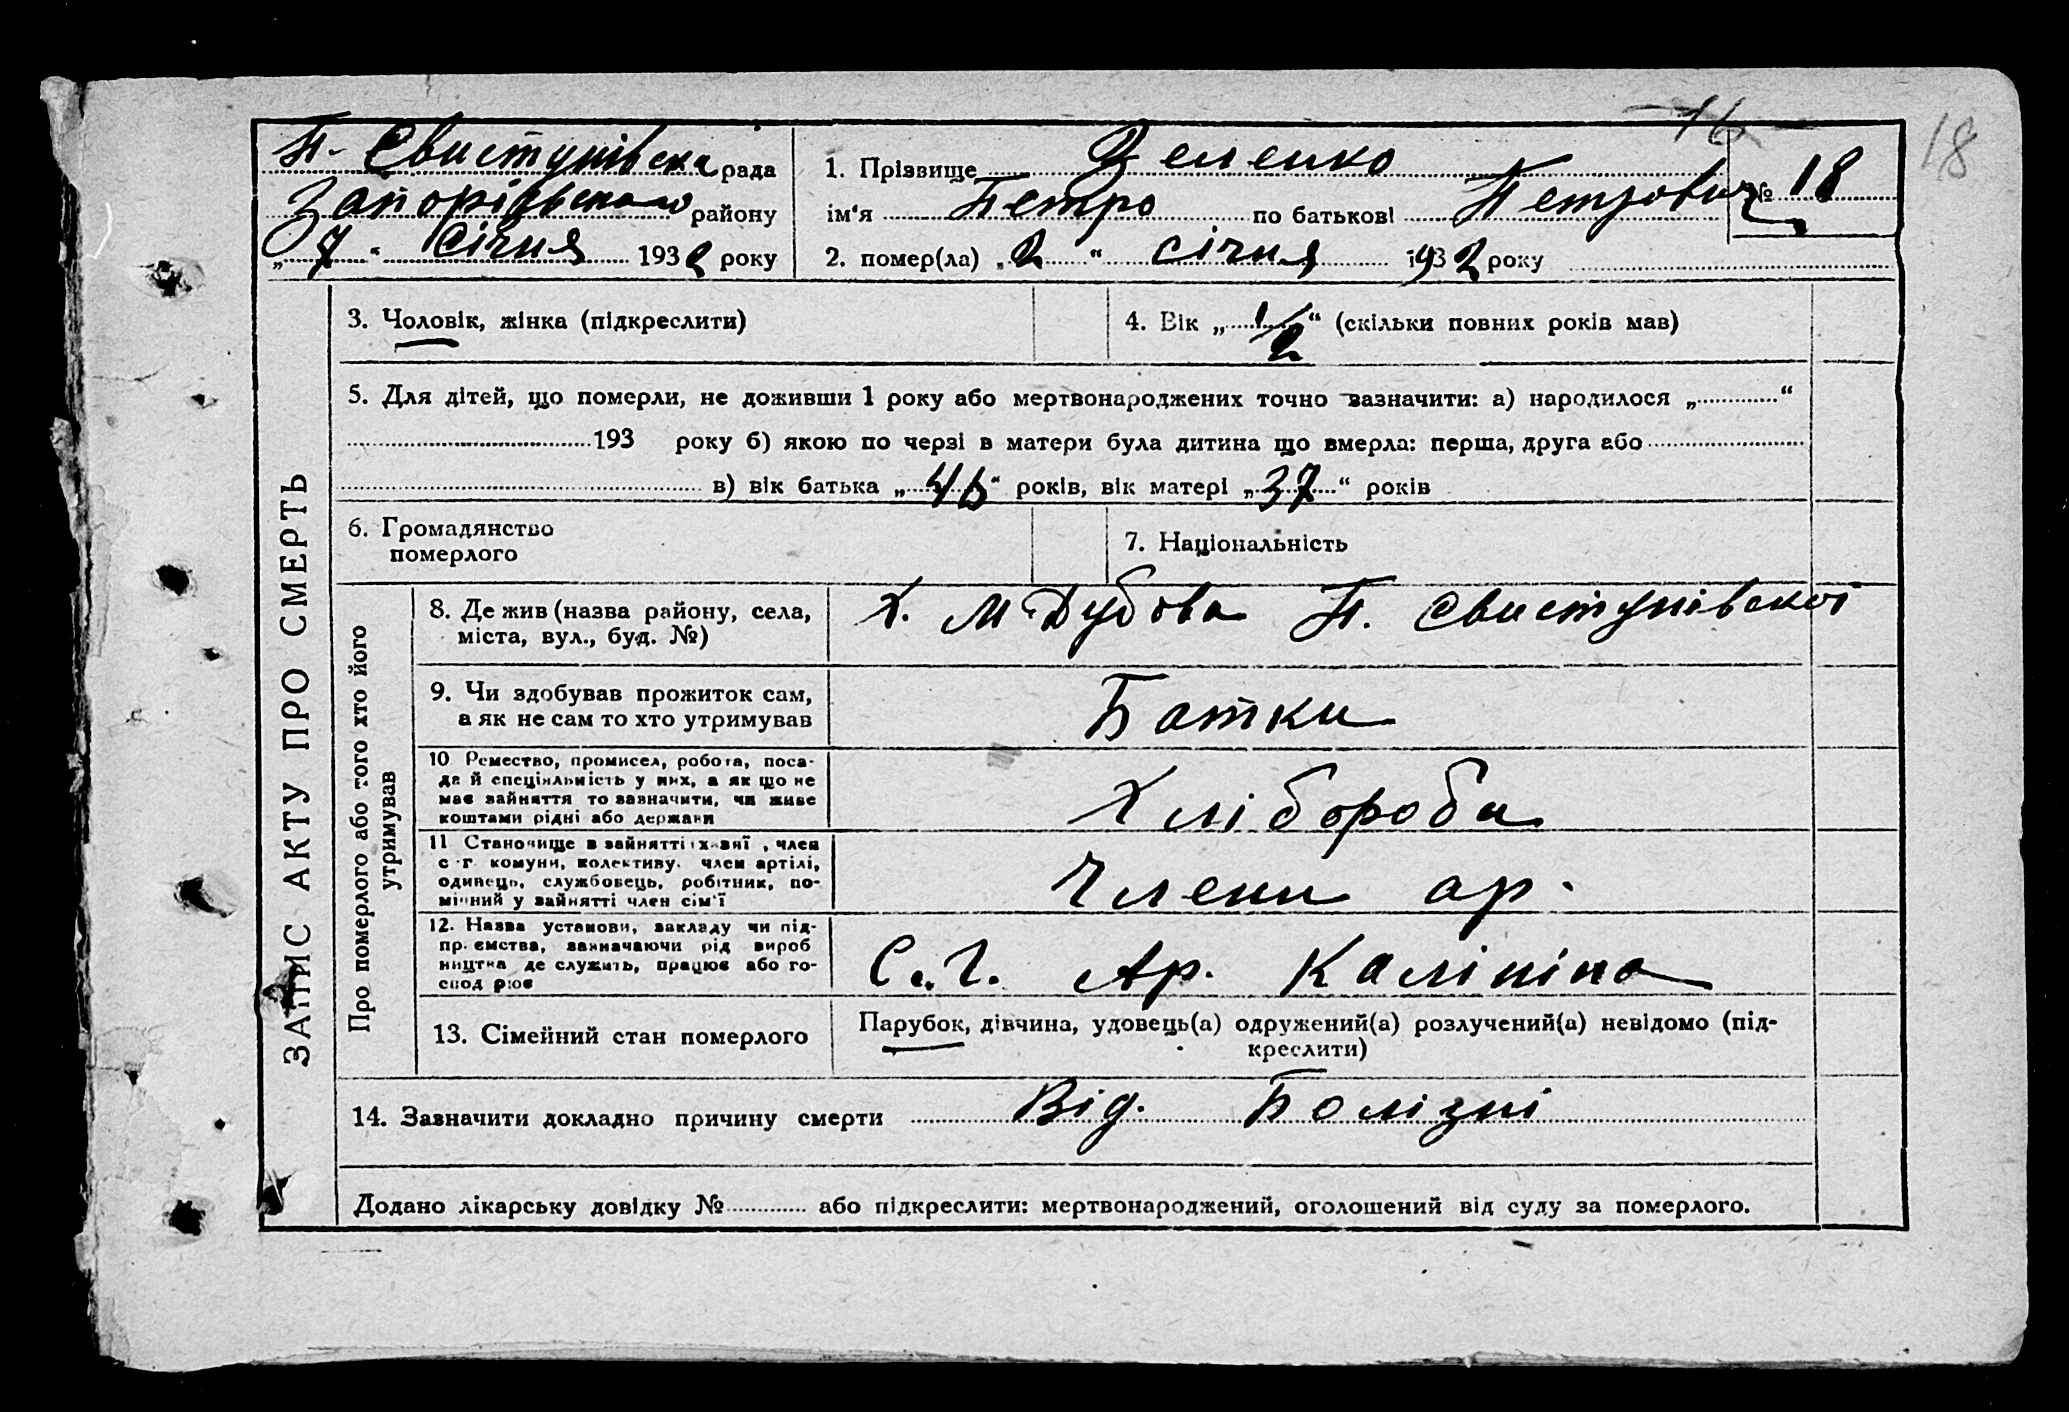 16
18
П. Свистунівська рада
Запорізького району
„ 7 “ січня 1932 року
1. Прізвище Зеленко
ім‘я Петро по батькові Петрович
№ 18
2. помер(ла) „ 2 “ січня 1932 року
ЗАПИС АКТУ ПРО СМЕРТЬ
3. Чоловік, жінка (підкреслити)
4. Вік „ 1/2 “ (скільки повних років мав)
5. Для дітей, що померли, не доживши 1 року або мертвонароджених точно зазначити: а) народилося „ “
193 року б) якою по черзі в матери була дитина що вмерла: перша, друга або
в) вік батька „ 46 “ років, вік матері „ 37 “ років
6. Громадянство
померлого
7. Національність
Про померлого або того хто його
утримував
8. Де жив (назва району, села,
міста, вул., буд. №)
Х. М-Дубова П. Свистунівської
9. Чи здобував прожиток сам,
а як не сам то хто утримував
Батки
10 Ремество, промисел, робота, поса-
да й спеціяльність у них, а як що не
має зайняття то зазначити, чи живе
коштами рідні або держави
Хлібороба
11 Становище в зайнятті: , член
с-г комуни, колективу, член артілі,
одинець, службовець, робітник, по-
мічний у зайнятті член сім'ї
Члени ар.
12. Назва установи, закладу чи під-
приємства, зазначаючи рід вироб
ництва де служить, працює або го-
сподарює
С.Г. Ар. Калініна
13. Сімейний стан померлого
Парубок, дівчина, удовець(а) одружений(а) розлучений(а) невідомо (під-
креслити)
14. Зазначити докладно причину смерти Від. Болізні
Додано лікарську довідку № або підкреслити: мертвонароджений, оголошений від суду за померлого.